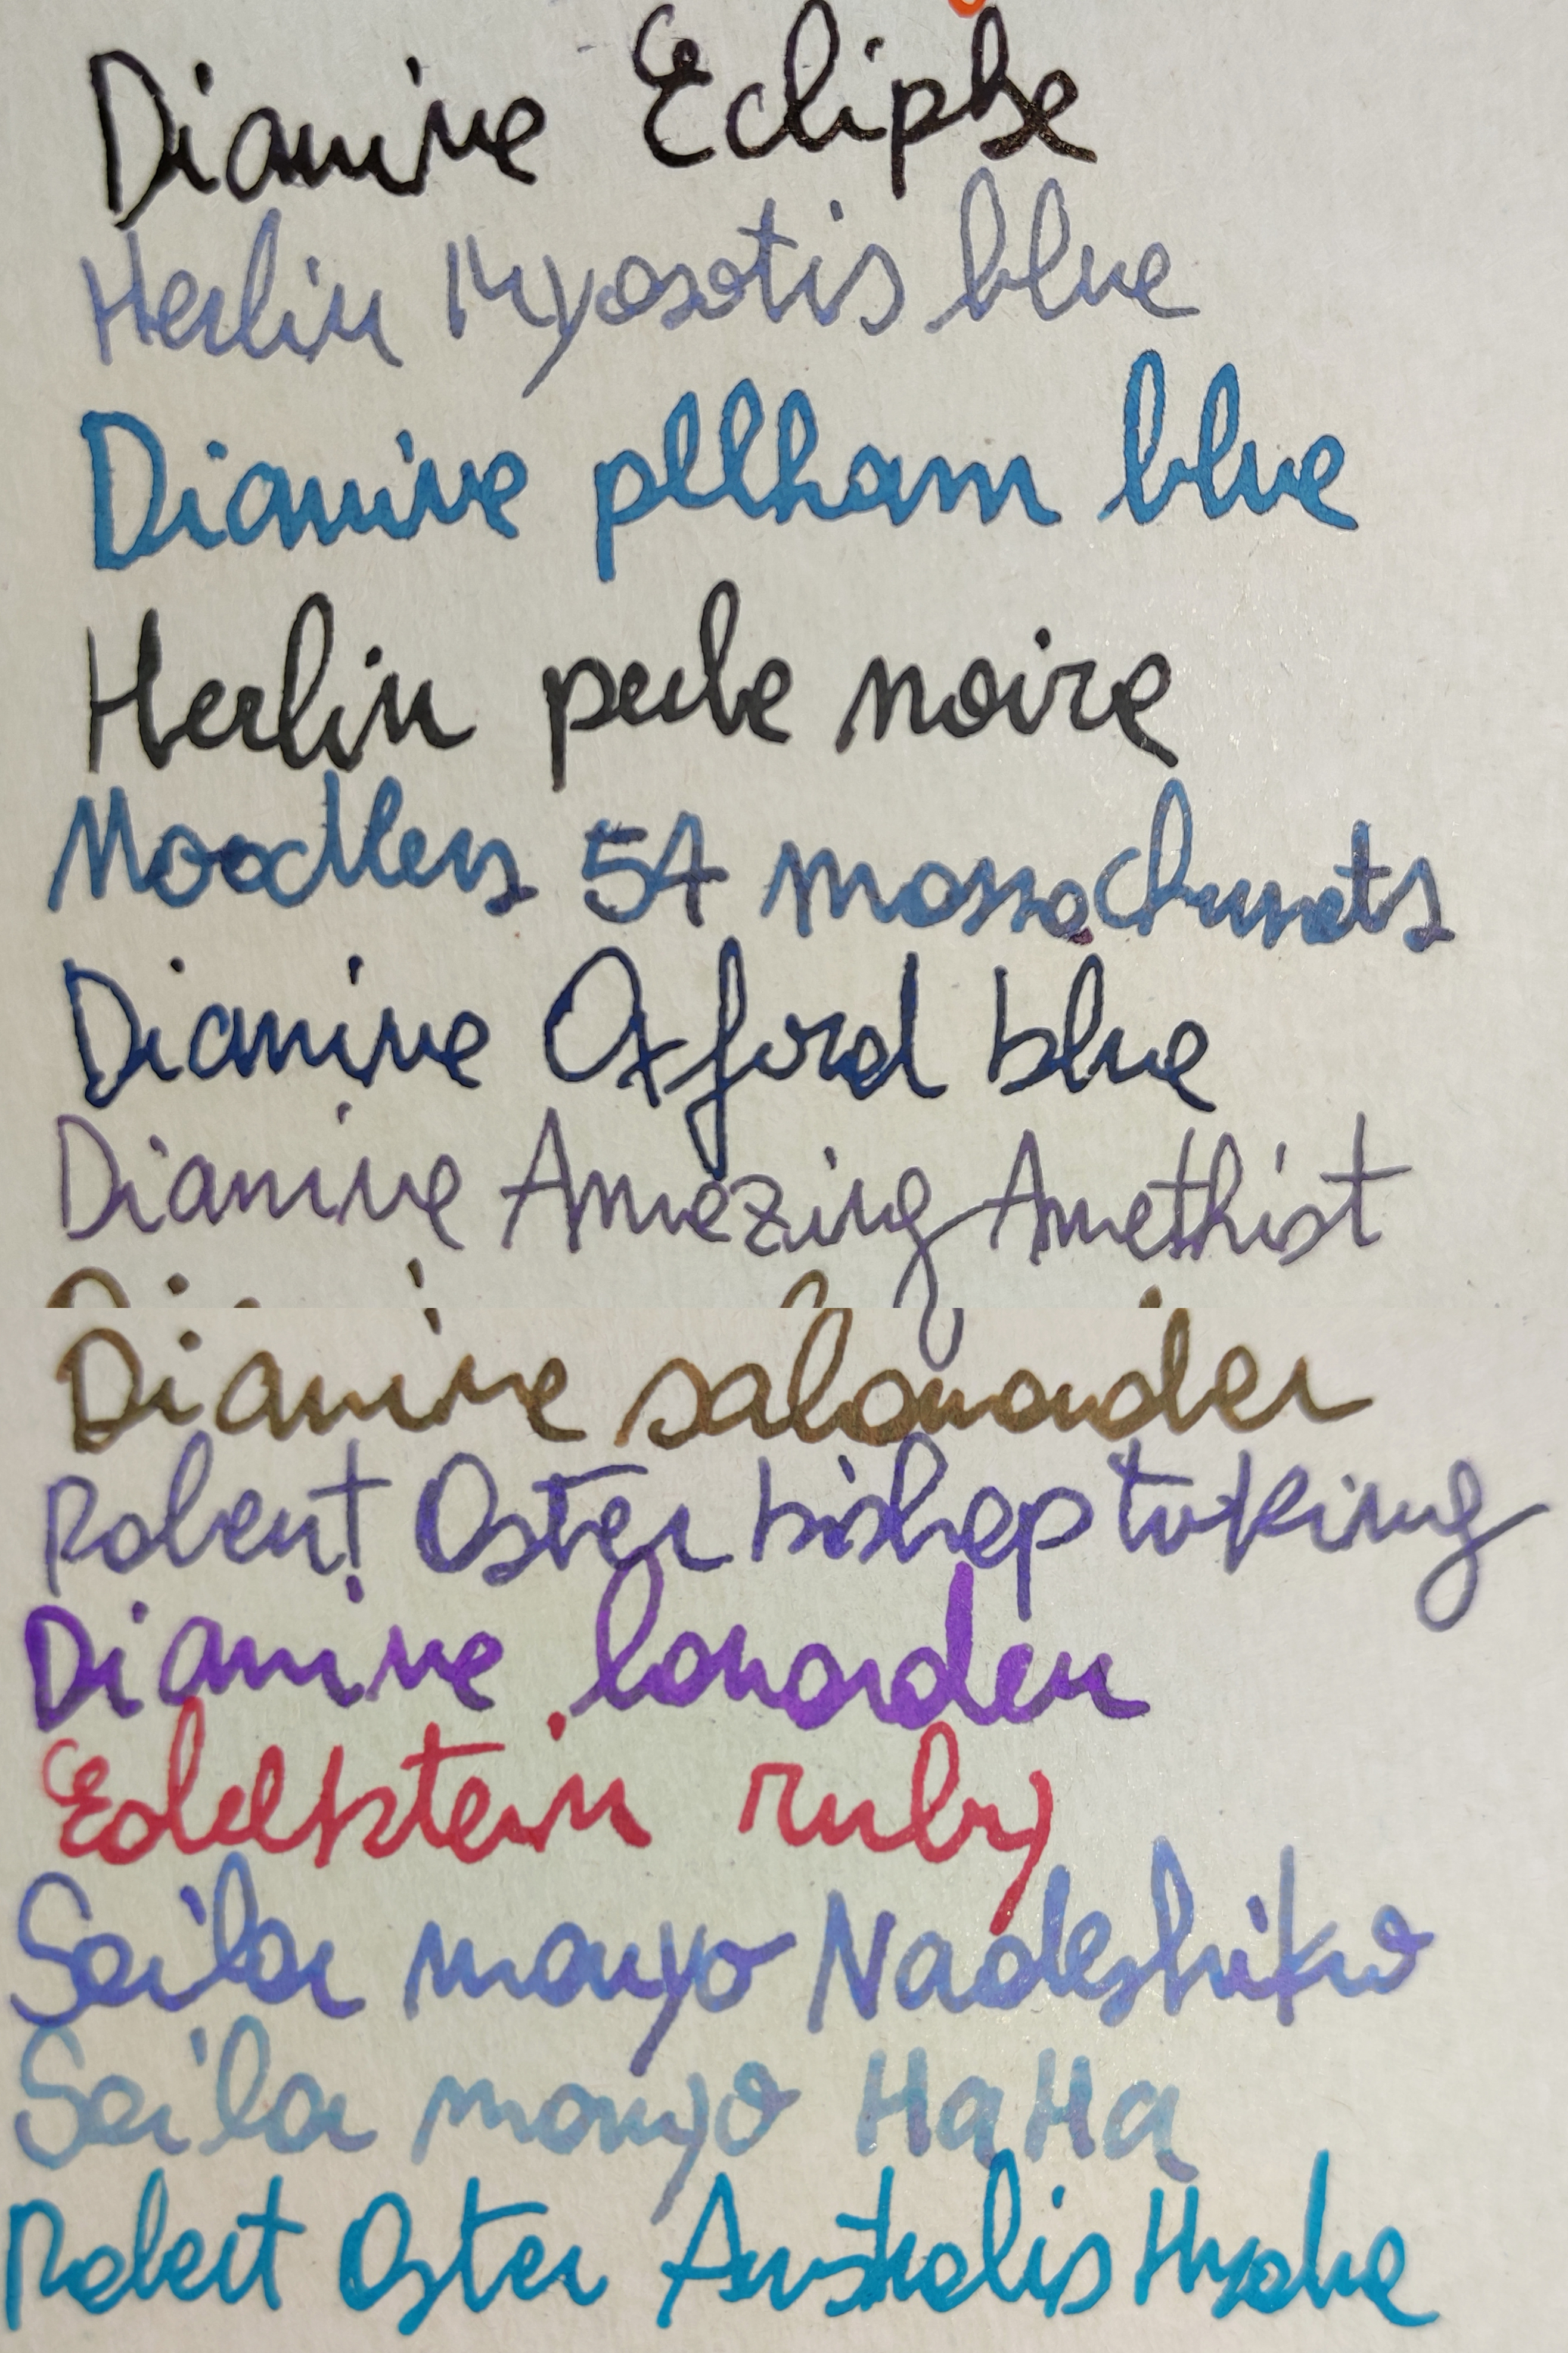 Diamine Eclipse
Herbin Myosotis blue
Diamine pelham blue
Herbin perle noire
Noodlers 54 massachusets
Diamine Oxford blue
Diamine Amazing Amethist
Diamine salamander
Robert Oster bishop to king
Diamine lavander
Edelstein ruby
Sailor manyo Nadeshiko
Sailor manyo HaHa
Robert Oster Australis Hydra